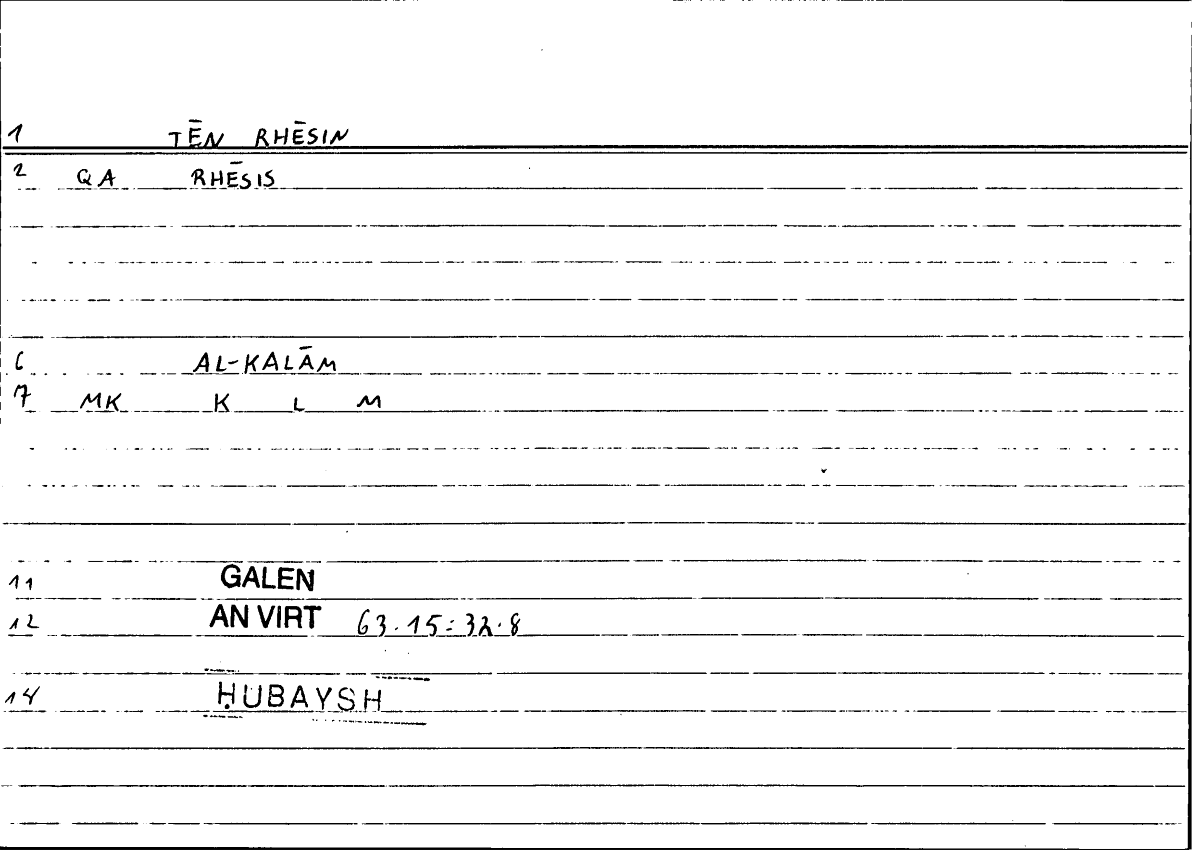 1 TĒN RHĒSIN
2 QA RHĒSIS
6 AL-KALĀM
7 MK K L M
11 GALEN
12 AN VIRT 63.15:32.8
14 ḤUBAYSH